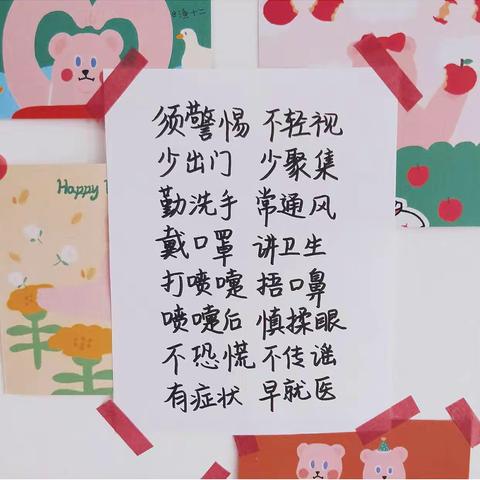 @渔十二
须警惕 不轻视
少出门 少聚集
Happy
勤洗手 常通风
戴口罩 讲卫生
打喷嚏 捂口鼻
喷嚏后 慎揉眼
不恐慌 不传谣
有症状 早就医